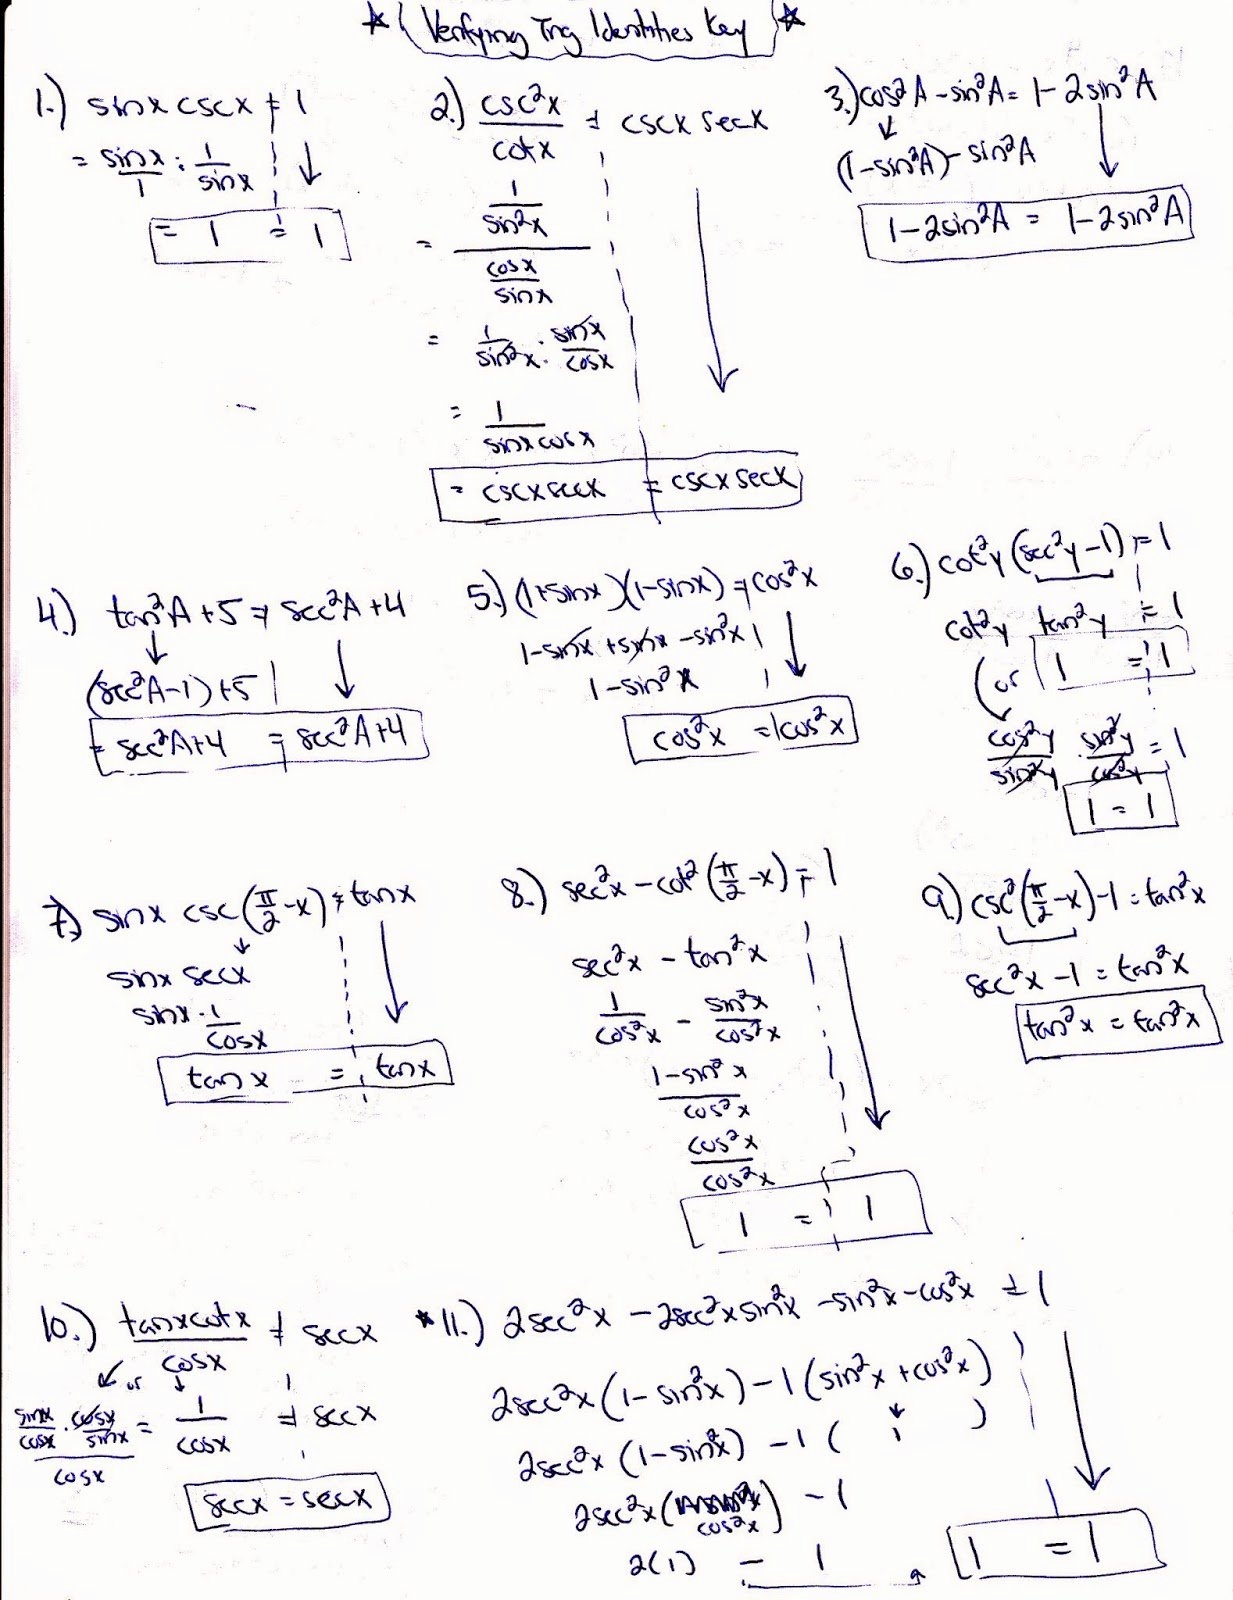 ★ Verifying Trig Identities Key ★
1.) sinx cscx = 1
= sinx/1 · 1/sinx ↓
= 1 = 1
2.) csc²x/cotx = cscx secx
= (1/sin²x)/(cosx/sinx)
= 1/sin²x · sinx/cosx
= 1/(sinx cosx)
= cscx secx = cscx secx
3.) cos²A - sin²A = 1 - 2sin²A
(1 - sin²A) - sin²A
1 - 2sin²A = 1 - 2sin²A
4.) tan²A + 5 = sec²A + 4
(sec²A - 1) + 5
= sec²A + 4 = sec²A + 4
5.) (1 + sinx)(1 - sinx) = cos²x
1 - sinx + sinx - sin²x
1 - sin²x
cos²x = cos²x
6.) cot²y (sec²y - 1) = 1
cot²y tan²y = 1
(or 1 = 1
cos²y/sin²y · sin²y/cos²y = 1
1 = 1
7.) sinx csc(π/2 - x) = tanx
sinx secx
sinx · 1/cosx
tanx = tanx
8.) sec²x - cot²(π/2 - x) = 1
sec²x - tan²x
1/cos²x - sin²x/cos²x
(1 - sin²x)/cos²x
cos²x/cos²x
1 = 1
9.) csc²(π/2 - x) - 1 = tan²x
sec²x - 1 = tan²x
tan²x = tan²x
10.) tanxcotx/cosx = secx
or
(sinx/cosx · cosx/sinx)/cosx = 1/cosx = secx
secx = secx
*11.) 2sec²x - 2sec²x sin²x - sin²x - cos²x = 1
2sec²x (1 - sin²x) - 1 (sin²x + cos²x)
2sec²x (1 - sin²x) - 1 ( 1 )
2sec²x ( cos²x ) - 1
2(1) - 1 1 = 1